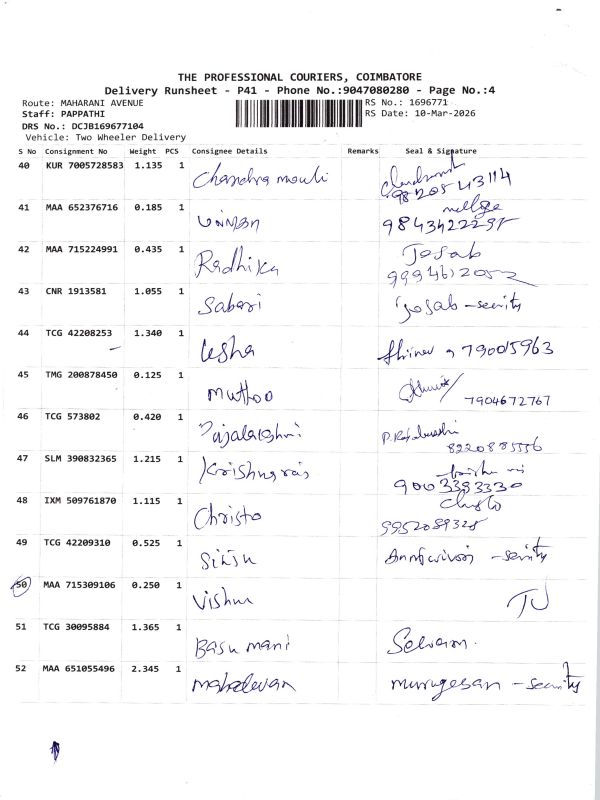 THE PROFESSIONAL COURIERS, COIMBATORE
Delivery Runsheet - P41 - Phone No.:9047080280 - Page No.:4
Route: MAHARANI AVENUE RS No.: 1696771
Staff: PAPPATHI RS Date: 10-Mar-2026
DRS No.: DCJB169677104
Vehicle: Two Wheeler Delivery
S No Consignment No Weight PCS Consignee Details Remarks Seal & Signature
40 KUR 7005728583 1.135 1 Chandra mouli
9820543114
41 MAA 652376716 0.185 1
9843422295
42 MAA 715224991 0.435 1 Radhika Josab
9994612052
43 CNR 1913581 1.055 1 Sabari Josab - security
44 TCG 42208253 1.340 1 Usha 79005963
45 TMG 200878450 0.125 1 Muttoo
7904672767
46 TCG 573802 0.420 1 Rajalakshmi P. Rajalakshmi
8220885556
47 SLM 390832365 1.215 1 Krishnaraj
9003383330
48 IXM 509761870 1.115 1 Christo Christo
9952089325
49 TCG 42209310 0.525 1 - security
50 MAA 715309106 0.250 1 Vishnu
51 TCG 30095884 1.365 1 Basu mani Selvam.
52 MAA 651055496 2.345 1 mahadevan murugesan - security